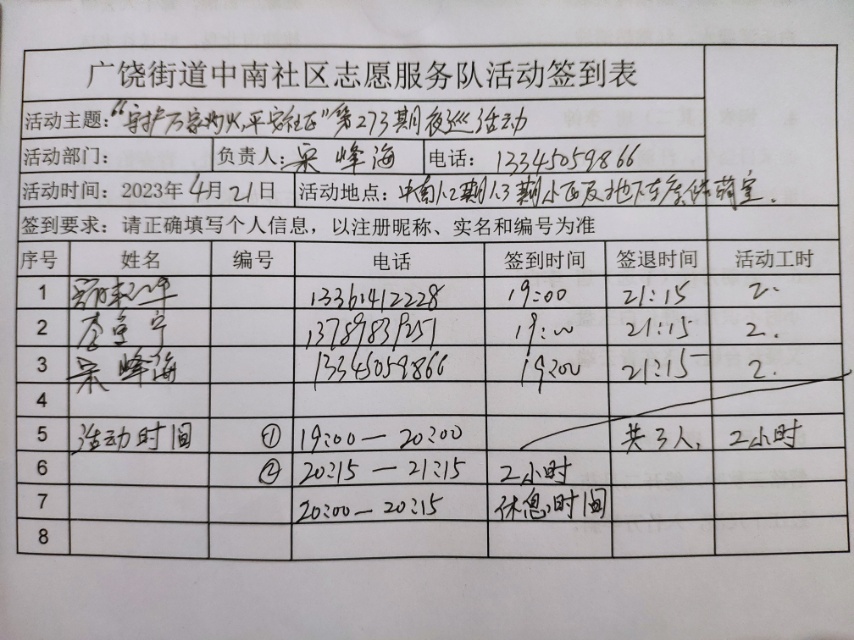 广饶街道中南社区志愿服务队活动签到表
活动主题:“守护万家灯火,平安社区”第273期夜巡活动
活动部门: 负责人: 宋峰海 电话: 13345059866
活动时间: 2023年4月21日 活动地点: 中南1.2期1.3期小区及地下车库储藏室.
签到要求: 请正确填写个人信息,以注册昵称、实名和编号为准
序号 姓名 编号 电话 签到时间 签退时间 活动工时
1 13361412228 19:00 21:15 2.
2 李宝宁 13789839251 19:00 21:15 2.
3 宋峰海 13345059866 19:00 21:15 2.
4
5 活动时间 ① 19:00—20:00 共3人, 2小时
6 ② 20:15—21:15 2小时
7 20:00—20:15 休息时间
8